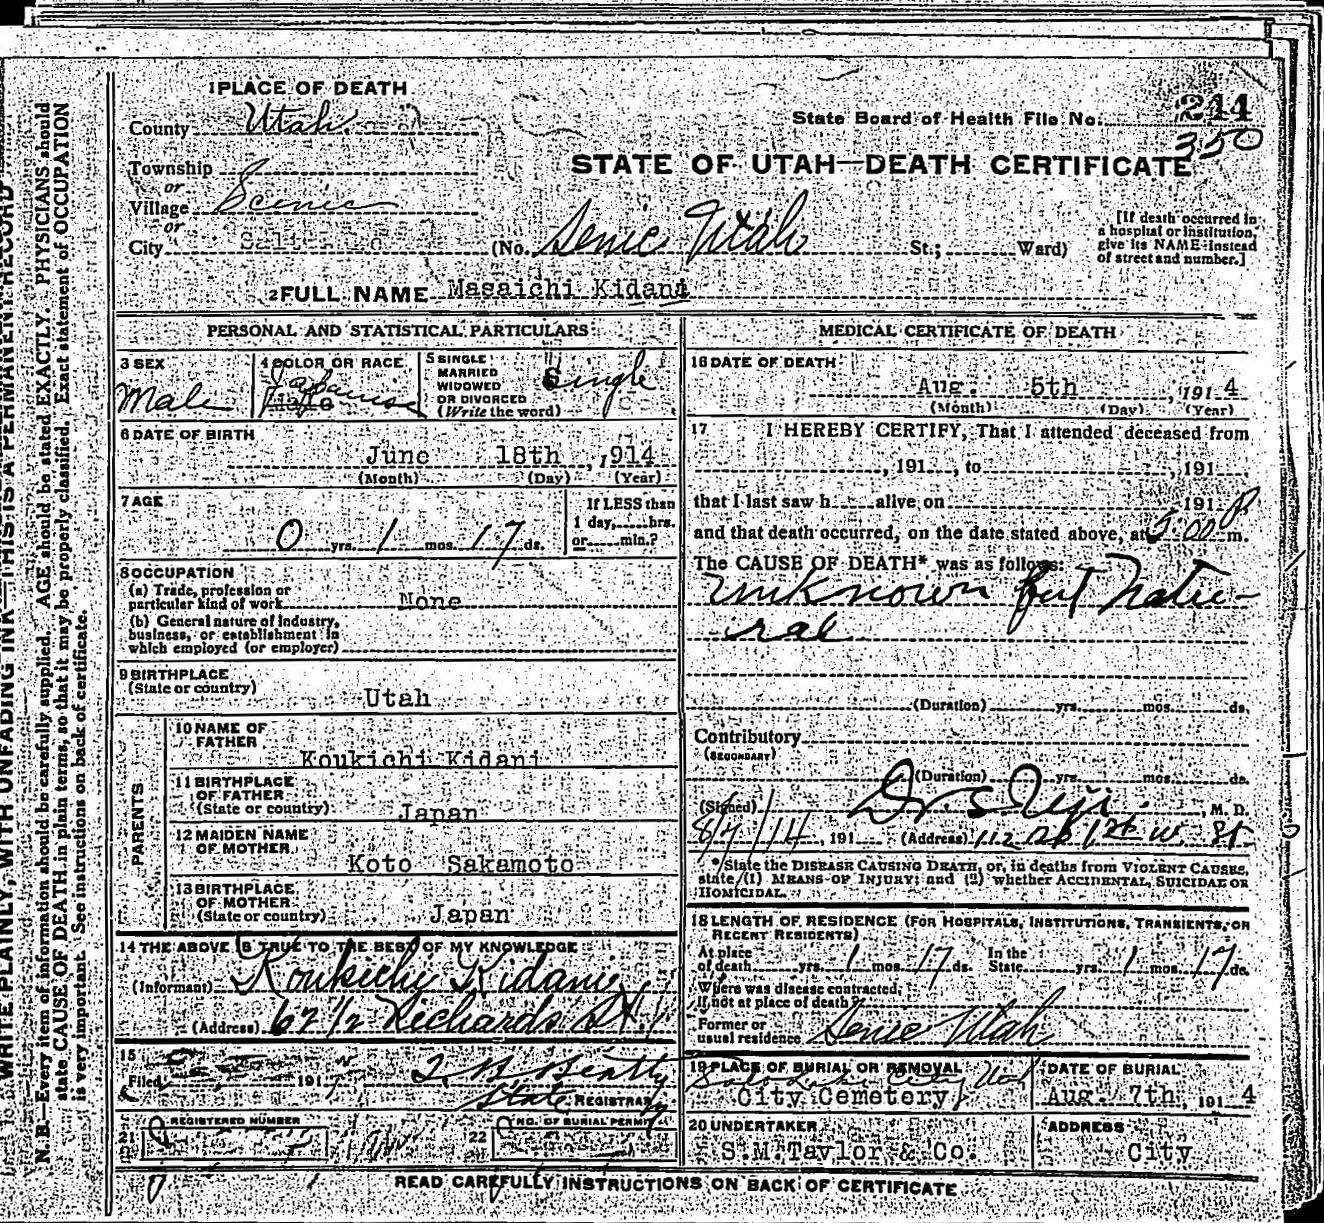 1 PLACE OF DEATH
County Utah.
State Board of Health File No. 244
350
STATE OF UTAH—DEATH CERTIFICATE
Township
or
Village Scenic
or
City
(No. Senic Utah St.; Ward)
[If death occurred in
a hospital or institution,
give its NAME instead
of street and number.]
2 FULL NAME Masaichi Kidani
PERSONAL AND STATISTICAL PARTICULARS
3 SEX
Male
4 COLOR OR RACE
Japanise
5 SINGLE
MARRIED
WIDOWED
OR DIVORCED
(Write the word)
Single
6 DATE OF BIRTH
June 18th, 1914
(Month) (Day) (Year)
7 AGE
0 yrs. 1 mos. 17 ds.
If LESS than
1 day, hrs.
or min.?
8 OCCUPATION
(a) Trade, profession or
particular kind of work None
(b) General nature of industry,
business, or establishment in
which employed (or employer)
9 BIRTHPLACE
(State or country)
Utah
PARENTS
10 NAME OF
FATHER
Koukichi Kidani
11 BIRTHPLACE
OF FATHER
(State or country) Japan
12 MAIDEN NAME
OF MOTHER
Koto Sakamoto
13 BIRTHPLACE
OF MOTHER
(State or country) Japan
14 THE ABOVE IS TRUE TO THE BEST OF MY KNOWLEDGE
(Informant) Koukichi Kidani
(Address) 62 1/2 Richards St.
15
Filed 191
T. B. Beatty
State REGISTRAR
21 REGISTERED NUMBER
22 NO. OF BURIAL PERMIT
MEDICAL CERTIFICATE OF DEATH
16 DATE OF DEATH
Aug. 5th, 1914
(Month) (Day) (Year)
17 I HEREBY CERTIFY, That I attended deceased from
, 191 , to , 191 ,
that I last saw h alive on 191
and that death occurred, on the date stated above, at 5:00 P m.
The CAUSE OF DEATH* was as follows:
Unknown but Natu-
ral
(Duration) yrs. mos. ds.
Contributory
(SECONDARY)
(Duration) yrs. mos. ds.
(Signed) Dr. S. , M. D.
8/7/14, 191 (Address) 112 1st W. St.
*State the DISEASE CAUSING DEATH, or, in deaths from VIOLENT CAUSES,
state (1) MEANS OF INJURY; and (2) whether ACCIDENTAL, SUICIDAL OR
HOMICIDAL.
18 LENGTH OF RESIDENCE (FOR HOSPITALS, INSTITUTIONS, TRANSIENTS, OR
RECENT RESIDENTS)
At place
of death yrs. 1 mos. 17 ds.
In the
State yrs. 1 mos. 17 ds.
Where was disease contracted,
if not at place of death?
Former or
usual residence Senic Utah
19 PLACE OF BURIAL OR REMOVAL
Salt Lake City Utah
City Cemetery
DATE OF BURIAL
Aug. 7th, 1914
20 UNDERTAKER
S.M. Taylor & Co.
ADDRESS
City
READ CAREFULLY INSTRUCTIONS ON BACK OF CERTIFICATE
WRITE PLAINLY, WITH UNFADING INK—THIS IS A PERMANENT RECORD
N. B.—Every item of information should be carefully supplied. AGE should be stated EXACTLY. PHYSICIANS should
state CAUSE OF DEATH in plain terms, so that it may be properly classified. Exact statement of OCCUPATION
is very important. See instructions on back of certificate.